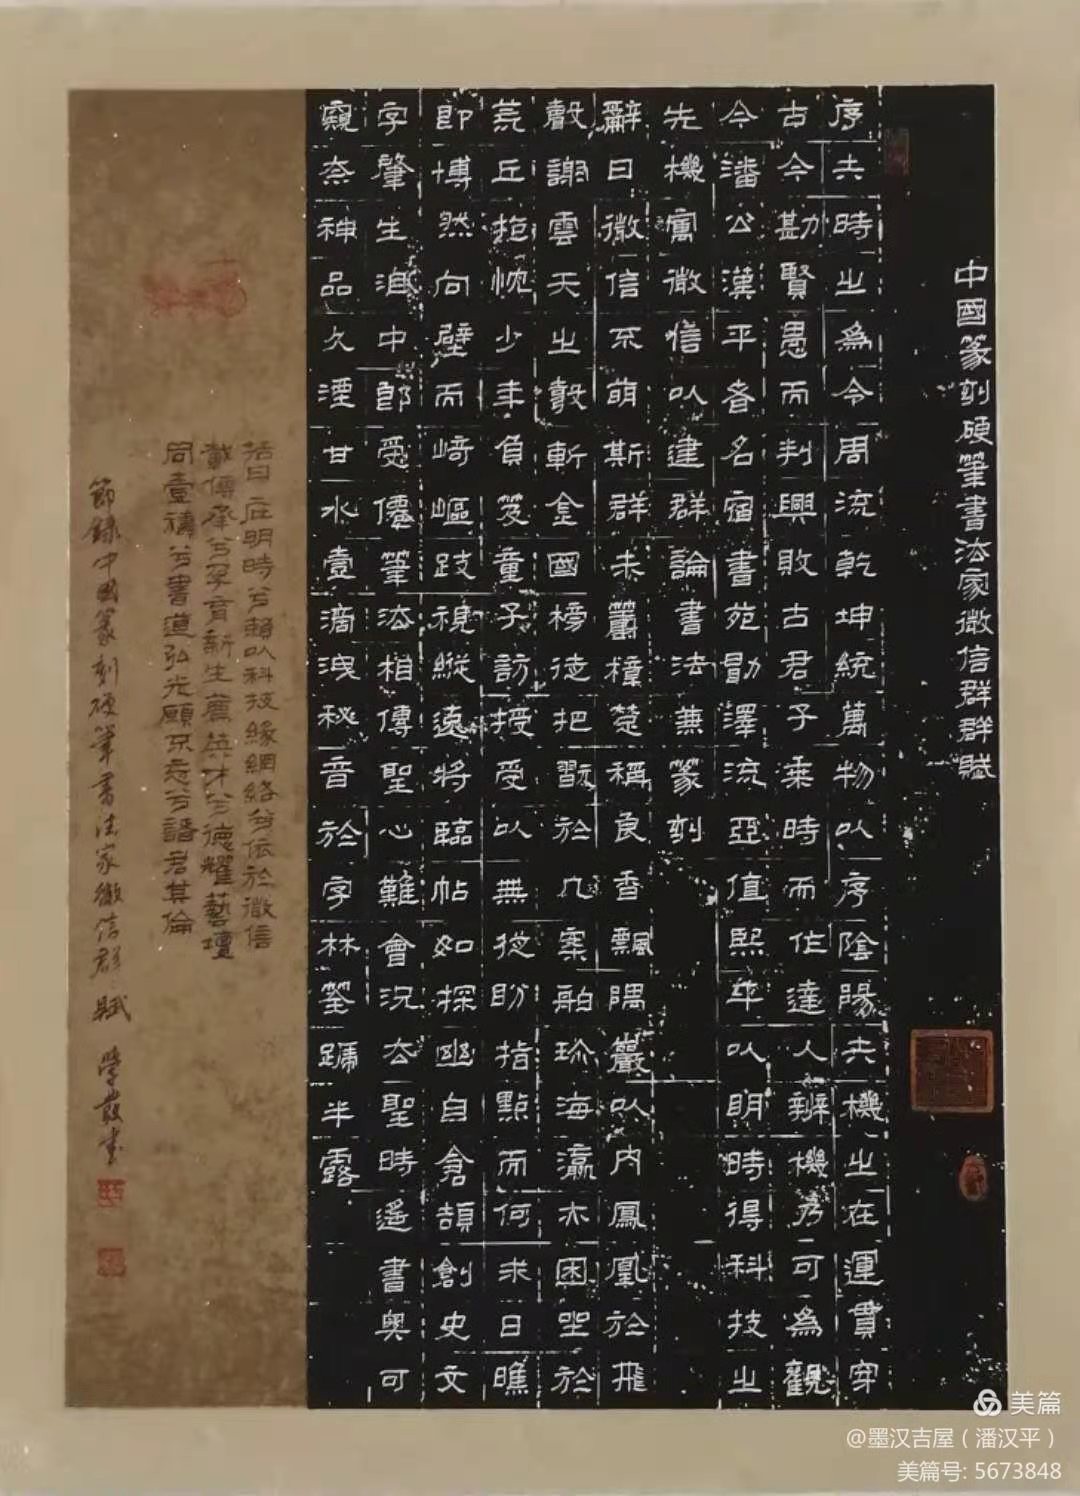 中國篆刻硬筆書法家微信群群賦
序夫時之為令周流乾坤統萬物以序陰陽夫機之在運貫穿
古今勘賢愚而判興敗古君子乘時而作達人辨機乃可為觀
今潘公漢平者名宿書苑勖澤流亞值熙年以明時得科技之
先機寓微信以建群論書法兼篆刻
辭曰微信不萌斯群未麗樟楚稱良香飄隅巖以內鳳凰於飛
聲謝雲天之敦斬金國榜徒把翫於几案舶珍海瀛亦困坐於
丘拖忱少年負笈童子訪授受以無從盼指點而何求日瞧
即博然向壁而崎嶇跂視縱遠將臨帖如探幽自倉頡創史文
字肇生洎中郎受僊筆法相傳聖心難會況去聖時遥書奧可
窺奈神品久湮甘水壹滴洩秘音於字林筌蹄半露
。曰应明時兮賴以科技緣網絡兮依於微信
載傳承兮孕育新生廣英才兮德耀藝壇
同壹禱兮書道弘光願不忘兮諸君其倫
節錄中國篆刻硬筆書法家微信群賦 學發書
美篇
@墨汉吉屋（潘汉平）
美篇号: 5673848